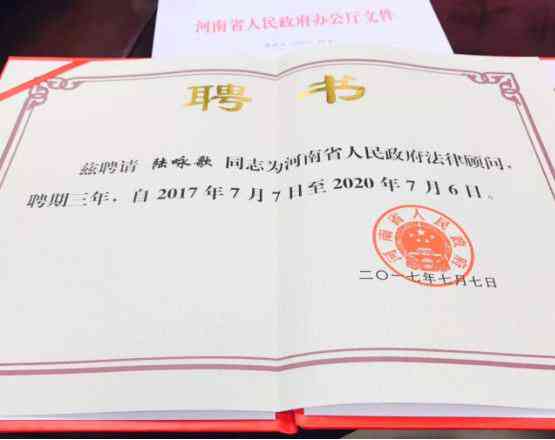 河南省人民政府办公厅文件
聘书
兹聘请 陆咏歌 同志为河南省人民政府法律顾问，
聘期三年，自2017年7月7日至2020年7月6日。
河南省人民政府
二〇一七年七月七日